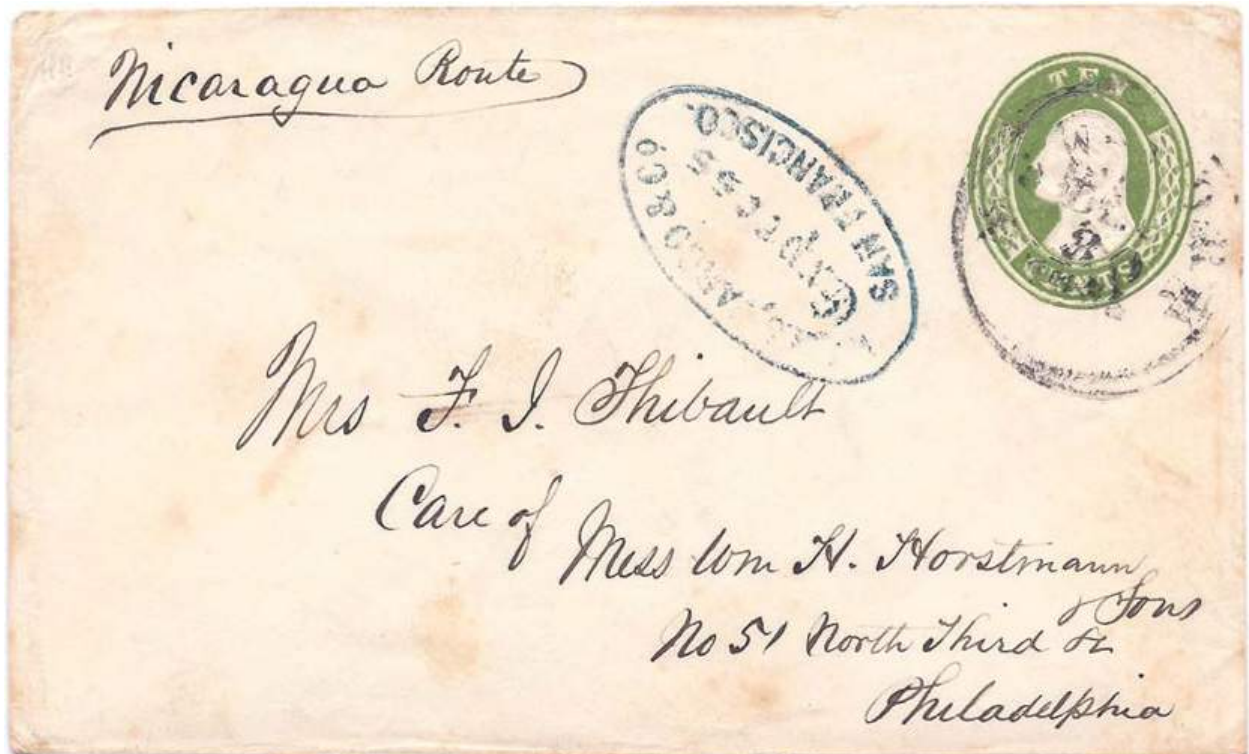 Nicaragua Route
TEN
CENTS
& Co
Exp
55
SAN FRANCISCO.
Mrs F. J. Thibault
Care of
Mess Wm H. Horstmann
& Sons
No 51 North Third St
Philadelphia